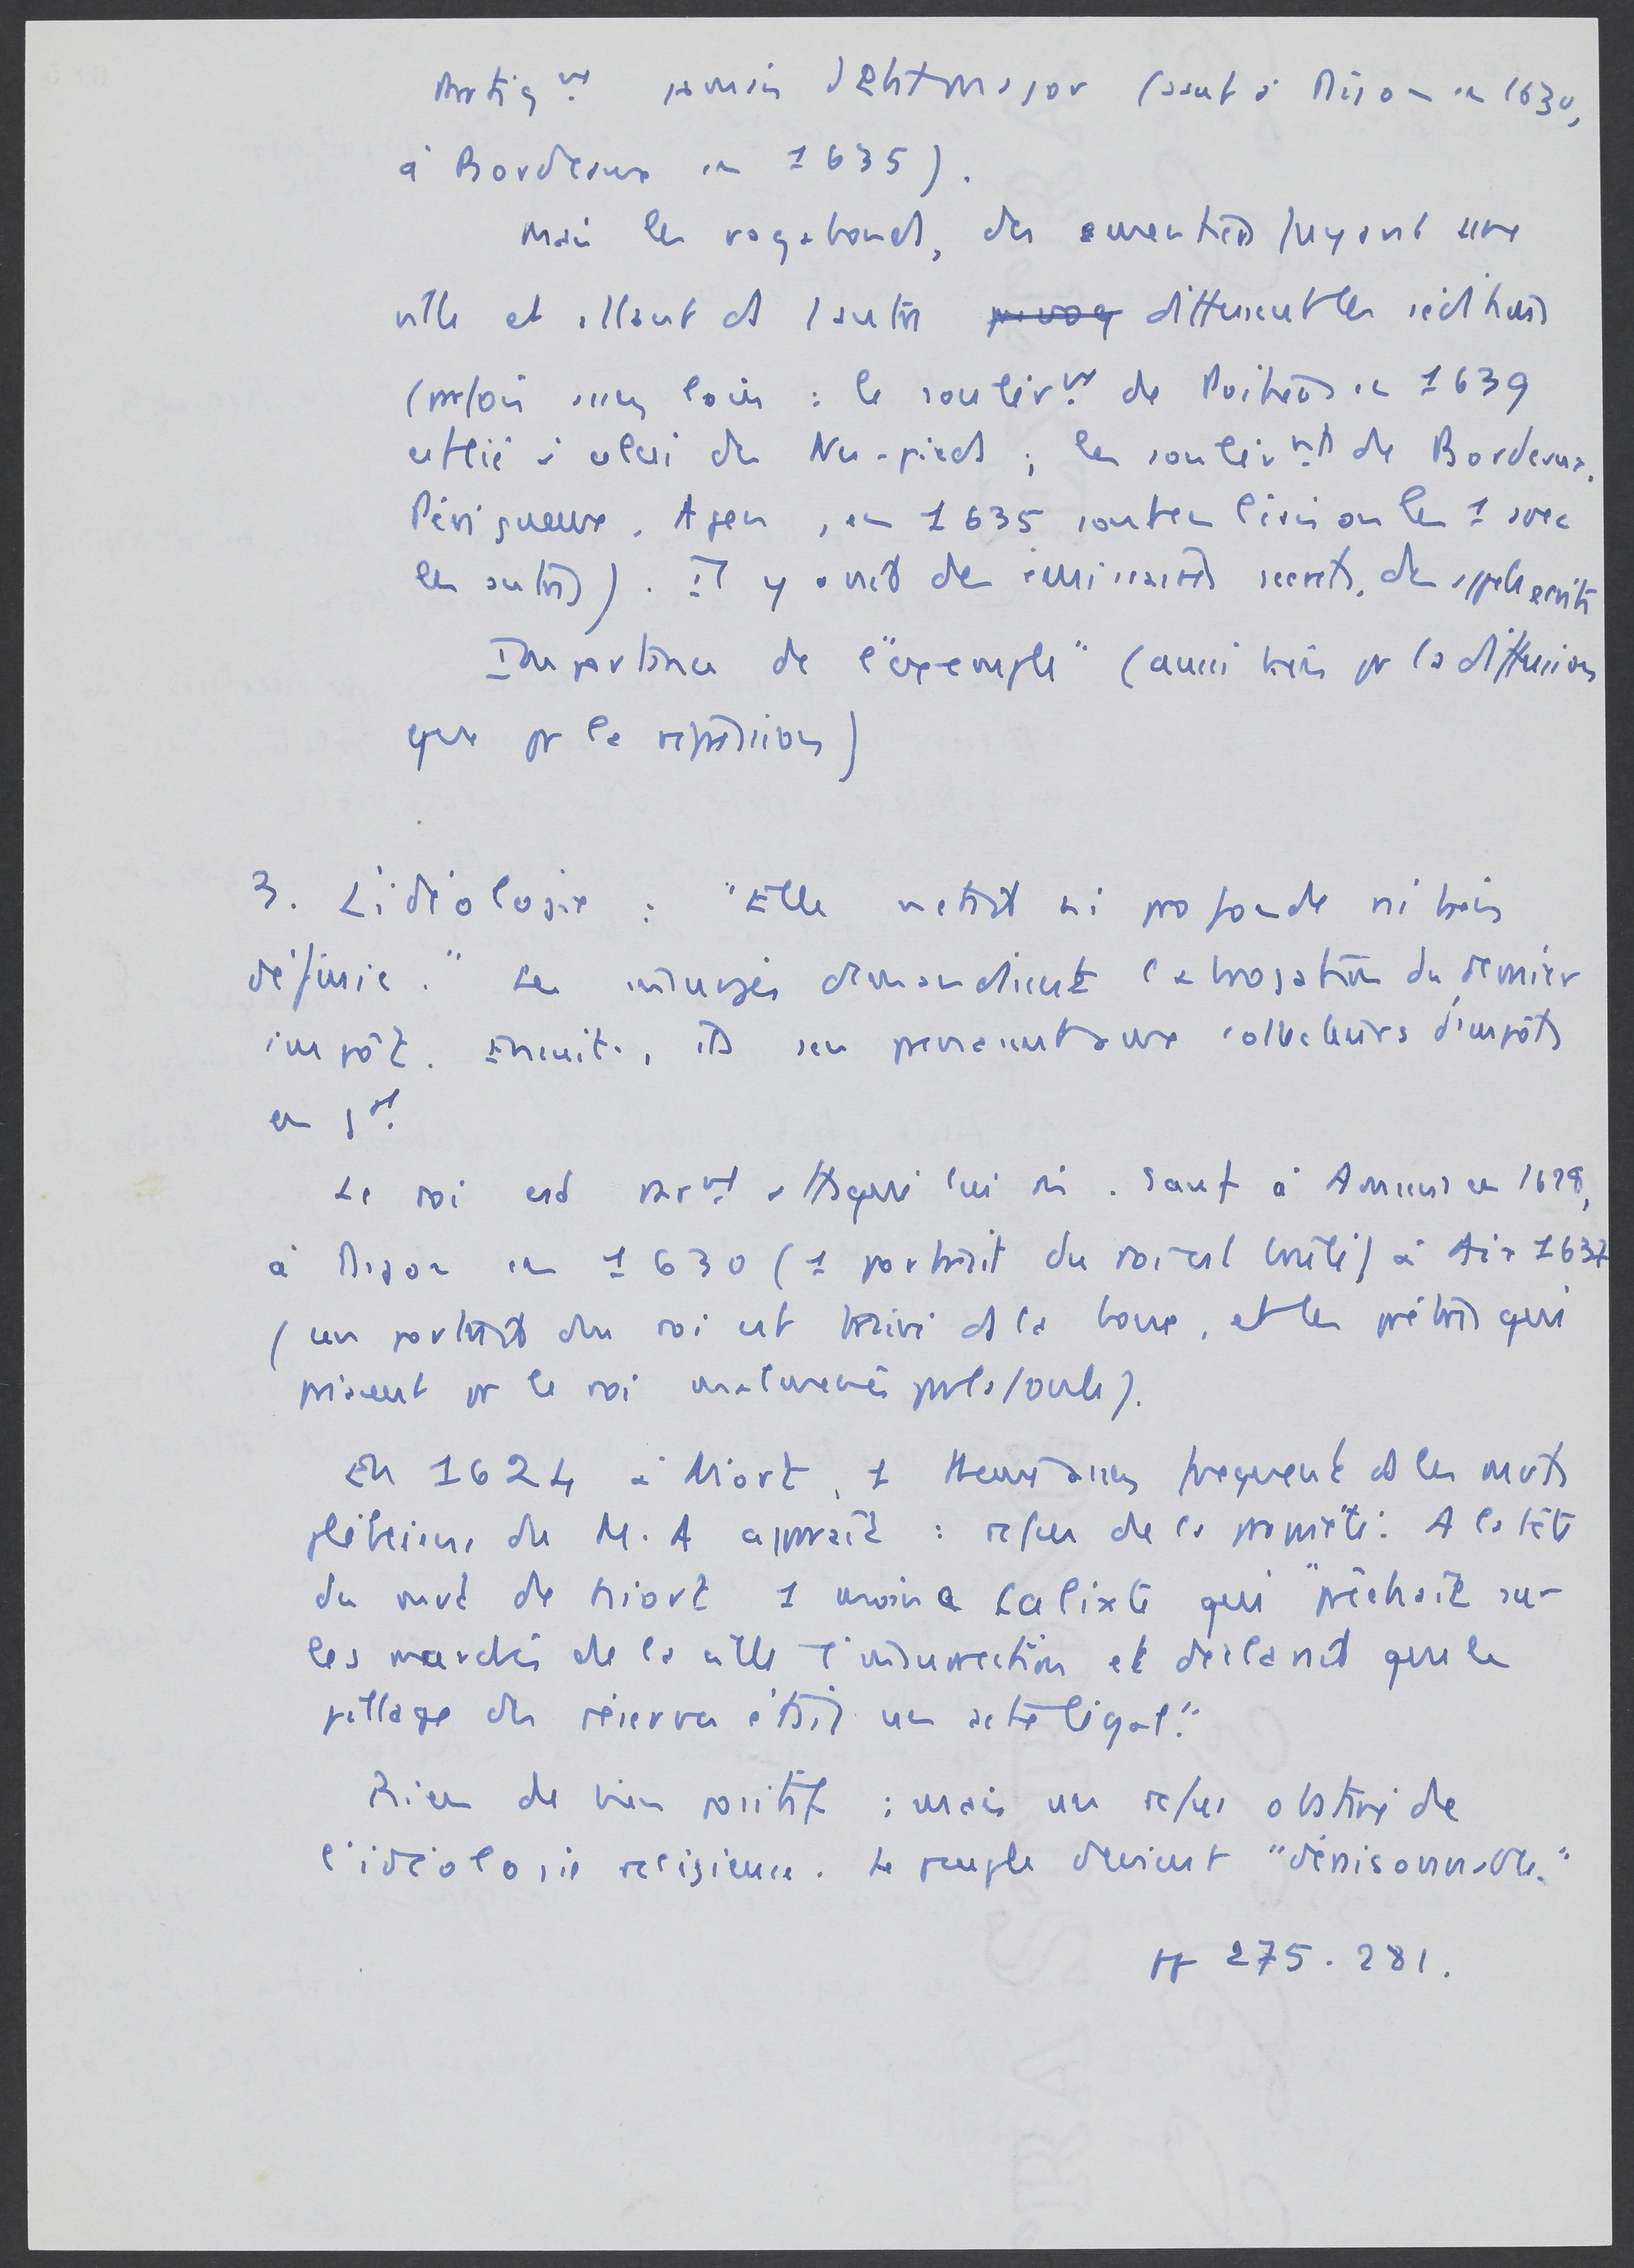 Pratiq.nt jamais d'Etat major (sauf à Dijon en 1630,
à Bordeaux en 1635).
Mais les vagabonds, des émeutiers fuyant une
ville et allant ds l'autre diffusent les séditions
(parfois assez loin : le soulèv.nt de Poitiers en 1639
est lié à celui des Nu-pieds ; les soulèv.nts de Bordeaux,
Périgueux, Agen, en 1635 sont en liaison les 1 avec
les autres). Il y avait des émissaires secrets, des appels écrits
Importance de l'"exemple" (aussi bien pr la diffusion
que pr la répression)
3. L'idéologie : "Elle n'était ni profonde ni bien
définie." Les insurgés demandaient l'abrogation du dernier
impôt. Ensuite, ils s'en prenaient aux collecteurs d'impôts
en gal.
Le roi est rar.nt attaqué lui-même. Sauf à Amiens en 1628,
à Dijon en 1630 (1 portrait du roi est brûlé) à Aix 1637
(un portrait du roi est traîné ds la boue, et les prêtres qui
priaient pr le roi malmenés par la foule).
En 1624 à Niort, 1 thème assez fréquent ds les mvts
plébéiens du M.A apparaît : refus de la propriété. A la tête
du mvt de Niort 1 moine Calixte qui "prêchait sur
les marchés de la ville l'insurrection et déclarait que le
pillage des réserves était un acte légal."
Rien de bien positif : mais un refus obstiné de
l'idéologie religieuse. Le peuple devient "déraisonnable."
pp 275-281.